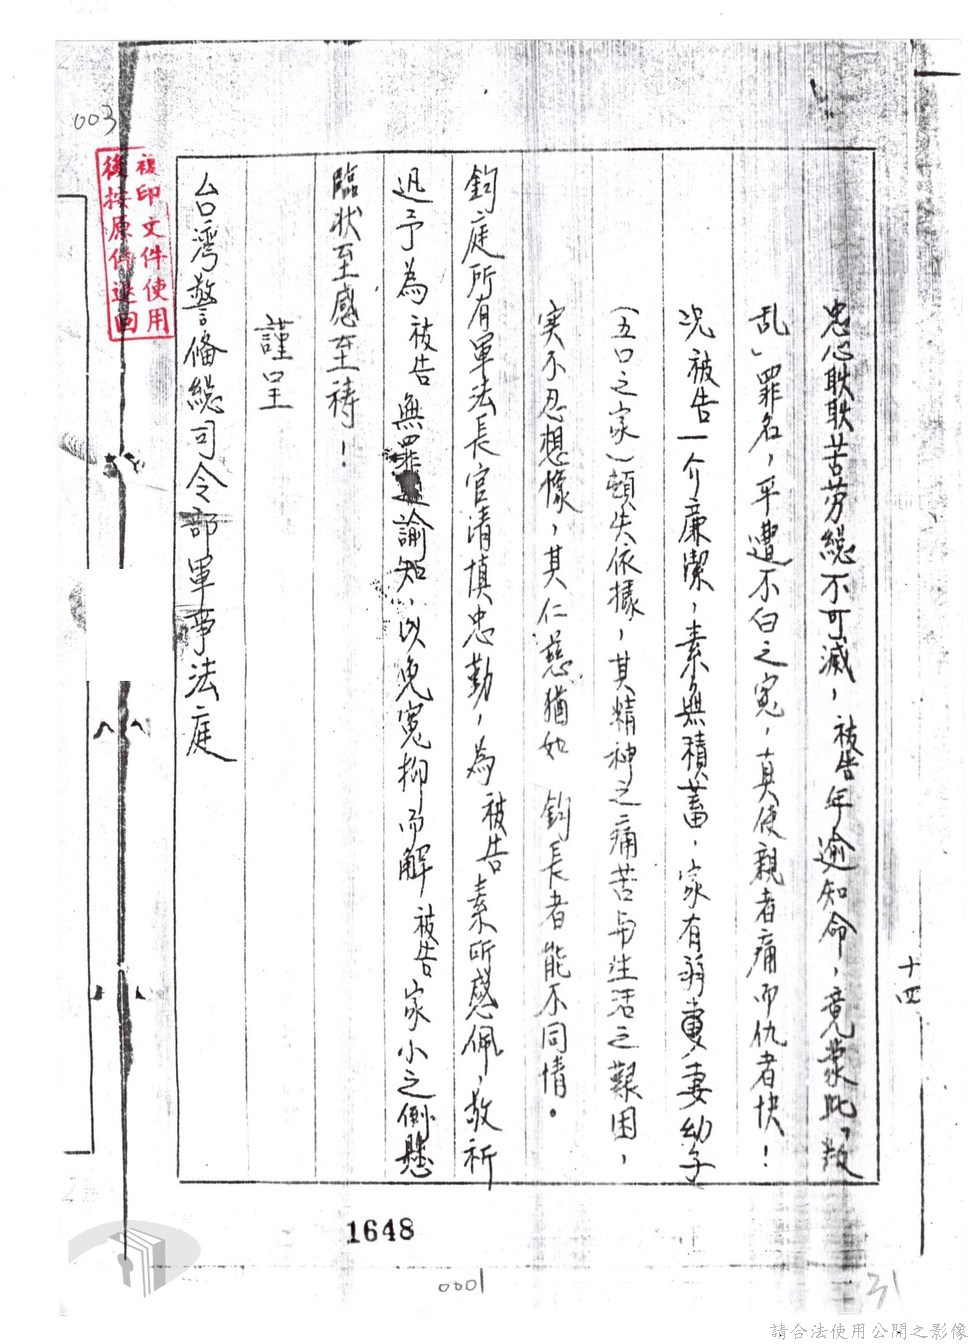 忠心耿耿苦劳縂不可滅，被告年逾知命，竟蒙此「叛
乱」罪名，平遭不白之寃，真使親者痛而仇者快！
况被告一介廉潔，素無積蓄，家有妻幼子
（五口之家）頓失依據，其精神之痛苦与生活之艱困，
实不忍想像，其仁慈猶如 鈞長者能不同情。
鈞庭所有軍法長官清慎忠勤，為被告素所感佩，敬祈
迅予為被告無罪諭知，以免寃抑而解被告家小之倒懸
臨状至感至禱！
謹呈
台湾警備縂司令部軍事法庭
十四
003
複印文件使用
後按原件退回
1648
0001
31
請合法使用公開之影像